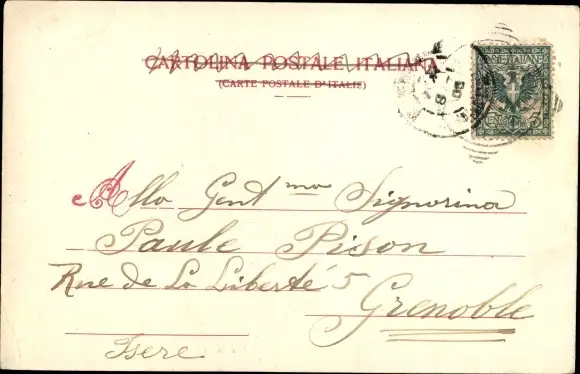 CARTOLINA POSTALE ITALIANA
(CARTE POSTALE D'ITALIE)
POSTE ITALIANE
CENT. 5
Alla Gent ma Signorina
Paule Pison
Rue de La Liberté 5
Grenoble
Isere